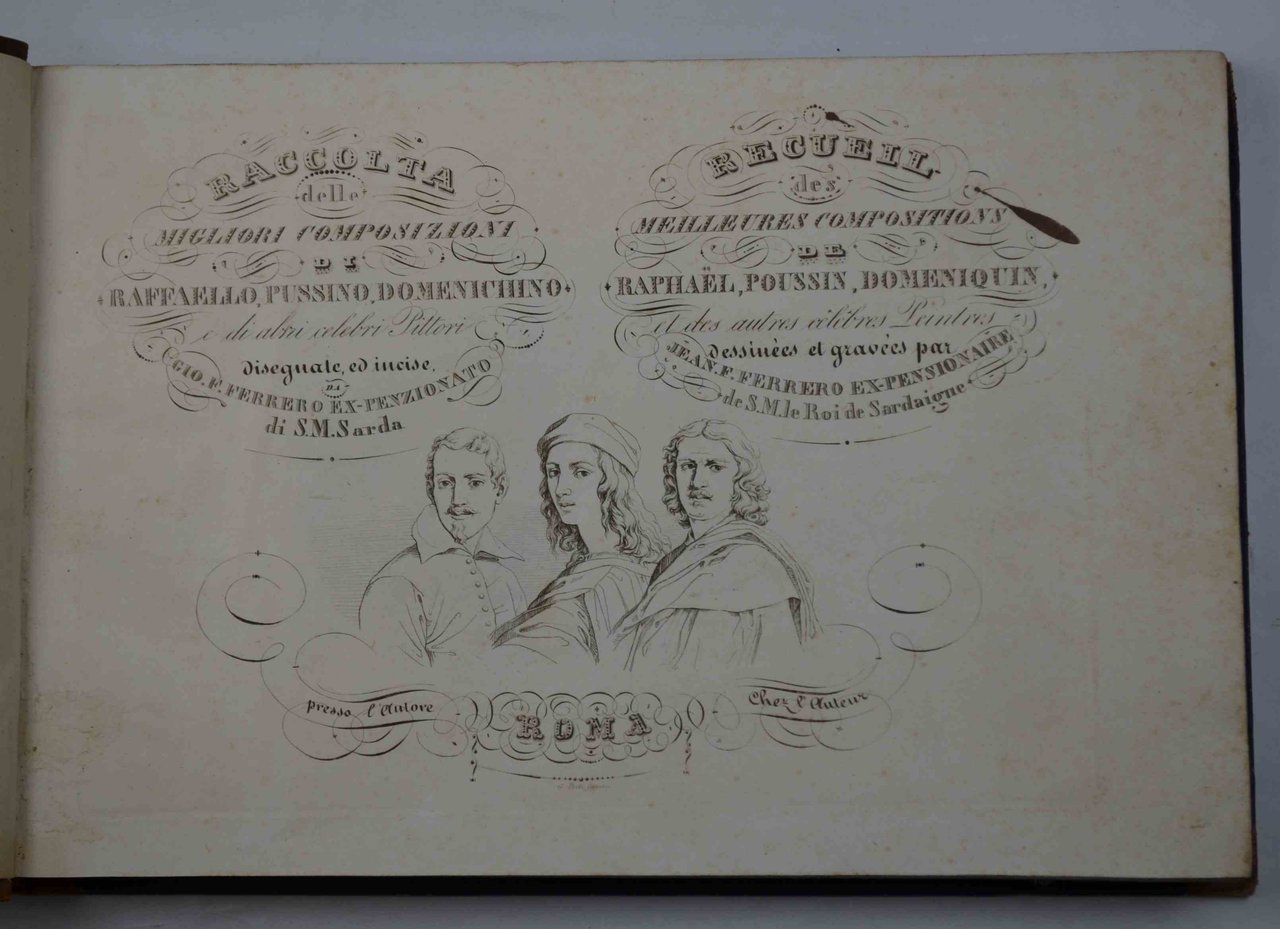 RACCOLTA
delle
MIGLIORI COMPOSIZIONI
DI
RAFFAELLO, PUSSINO, DOMENICHINO
e di altri celebri Pittori
disegnate, ed incise,
DA
GIO. F. FERRERO EX-PENZIONATO
di S.M. Sarda
RECUEIL
des
MEILLEURES COMPOSITIONS
DE
RAPHAËL, POUSSIN, DOMENIQUIN,
et des autres célèbres Peintres
dessinèes et gravèes par
JEAN. F. FERRERO EX-PENSIONAIRE
de S.M. le Roi de Sardaigne
presso l'Autore
ROMA
Chez l'Auteur